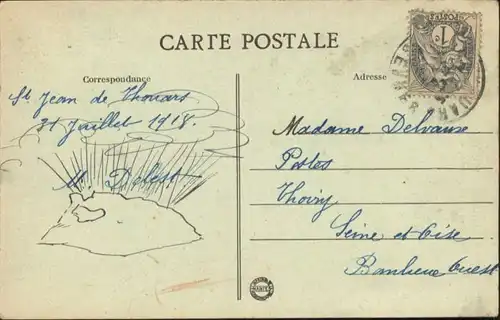 CARTE POSTALE
Correspondance
St Jean de Thouars
31 Juillet 1918.
M. Delest
Adresse
Madame Delvause
Postes
Thoiry
Seine et Oise
Banlieue Ouest
1c
POSTES